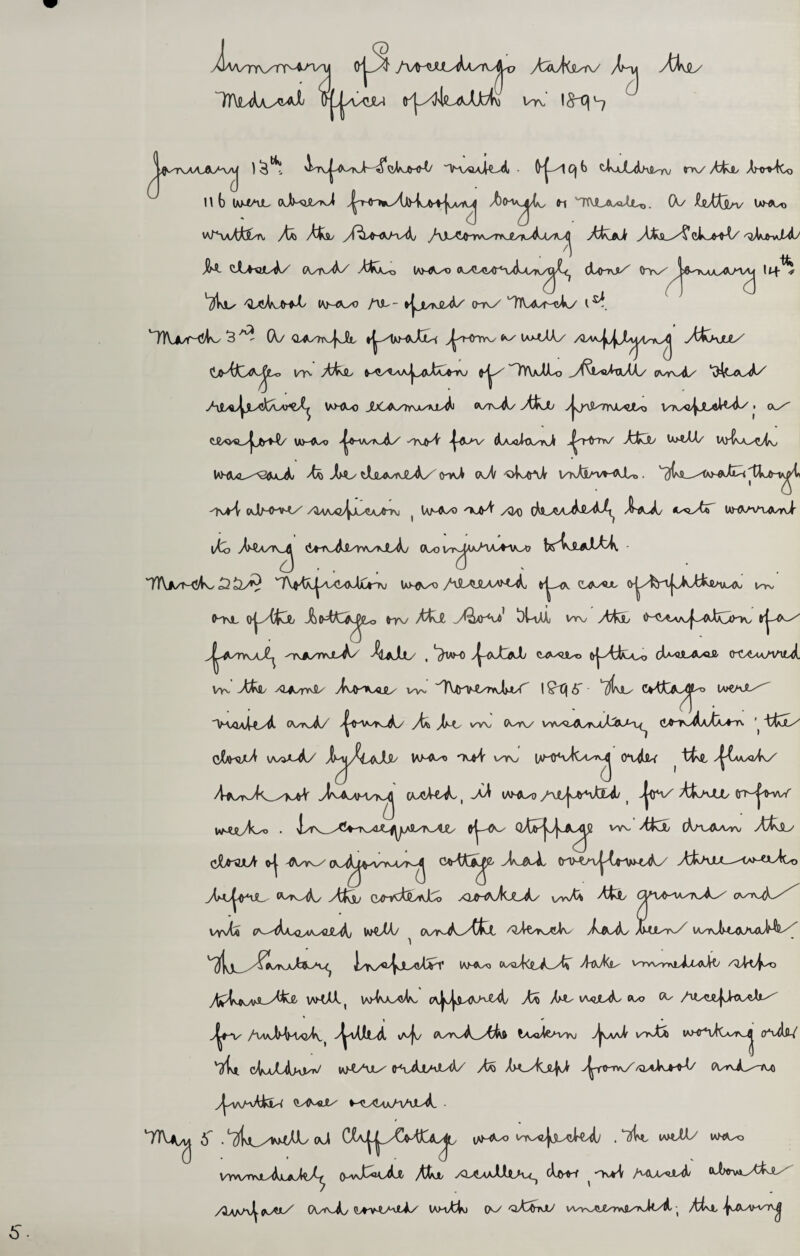 Summary of Proceedings taken by the
Medical Officer of Health in 1897
January 13th. Infant School visited. Of 196 children on the books
116 were absent from Whooping Cough or Measles. A letter was
written to the Board recommending that the School should
be closed and this was accordingly done on January 14th
The school was re-opened on March 1st.
March 3rd A sample of water from a well supplying three
Cottages in the occupation of Mills Restall and Head
respectively was examined and the premises inspected; a
cesspool was found not far distant from the well which
was said to be cleaned out at short intervals. The water though
not above suspicion, was not so decidedly bad as to warrant
its being condemned as injurious to health.
March 22nd Notification was received of a case of Diphtheria in
one of the Cottages on the Board Hill in the occupation of a
family named Hale, Two fatal cases of this disease occurred
in the same house in November 1895 The Cottages were
visited and found to be in an insanitary condition; the
closet used by Hale was not in working order, the flush
tank not having acted, it was reported, for three or four
weeks. In consequence of a stoppage in the drain the
closet of an adjoining cottage had overflowed three weeks
before and the contents soaked into the ground and
into a disused well, and the stench had been unbearable
The Sanitary Inspector was asked to take immediate steps
to have the well, which appeared to be used as a receptacle
for rubbish, filled up and the cistern put into working order
The children were ordered to be kept from school and no
further case occurred.
May 5. The well at Cliff Cottage was inspected. The well was
immediately outside the scullery door, not raised above the
surface and covered with a stone uncemented; the paving
5.